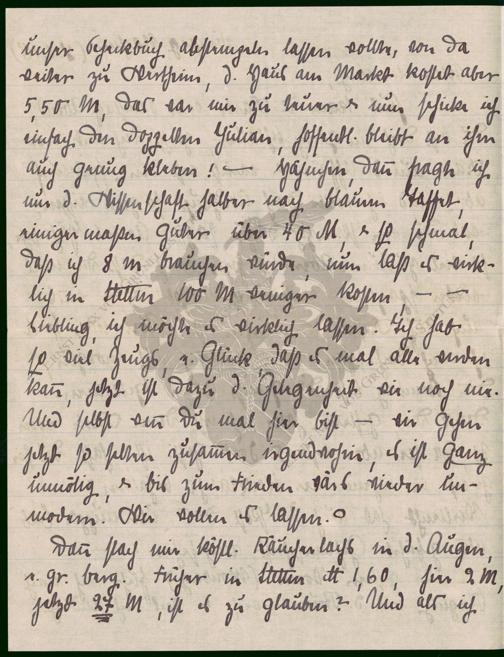 unser Scheckbuch abstempeln lassen wollte, von da
weiter zu Wertheim, d. Haus am Markt kostet aber
5,50 M, das war mir zu teuer & nun schicke ich
einfach den doppelten Julian, hoffentl. bleibt an ihm
auch genug kleben! — Häschen, dann fragte ich
nur d. Wissenschaft halber nach blauem Taffet,
einigermaßen guter über 40 M, & so schmal,
daß ich 8 m brauchen würde nun laß es wirk-
lich in Stettin 100 M weniger kosten, — —
Liebling, ich möchte es wirklich lassen. Ich hab
so viel Zeugs, u. Glück, daß es mal alle werden
kann, jetzt ist dazu d. Gelegenheit wie noch nie.
Und selbst wenn Du mal hier bist — wir gehen
jetzt so selten zusammen irgendwohin, es ist ganz
unnötig, & bis zum Frieden wär's wieder un-
modern. Wir wollen es lassen.
Dann stach mir köstl. Räucherlachs in d. Augen,
früher in Stettin 1,60, hier 2 M,
jetzt 27 M, ist es zu glauben? Und als ich